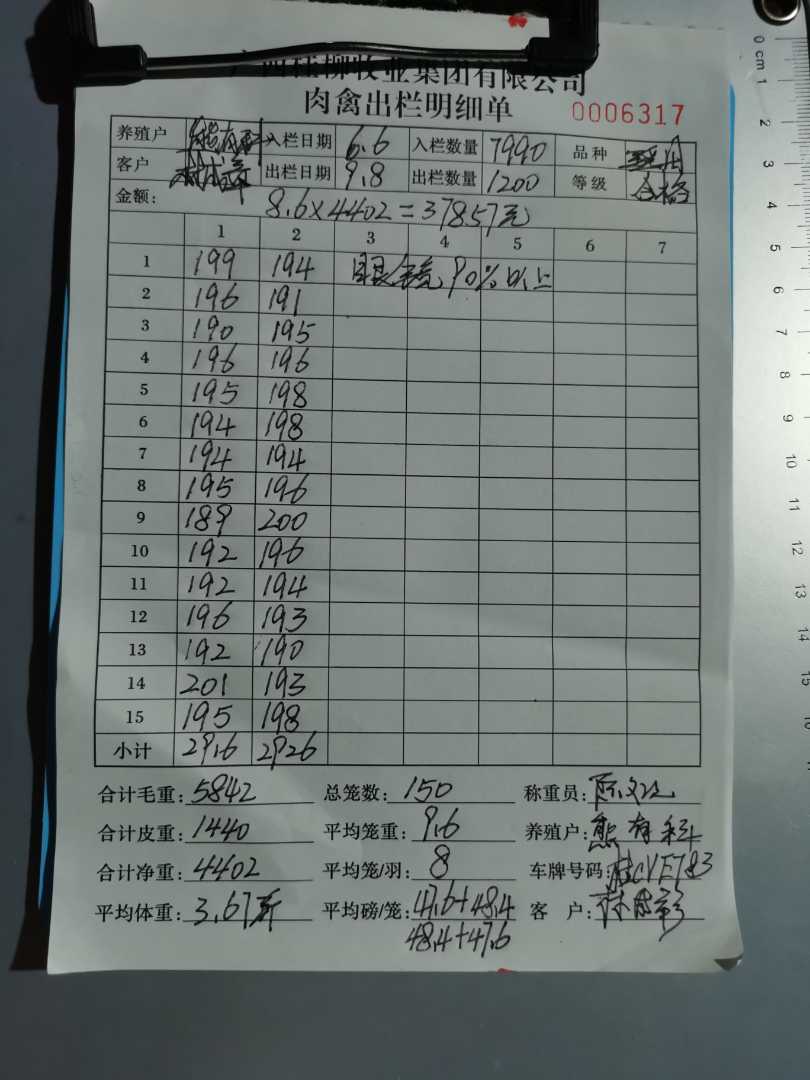 广西桂柳牧业集团有限公司
肉禽出栏明细单 0006317
养殖户 熊有科 入栏日期 6.6 入栏数量 7990 品种
客户 出栏日期 9.8 出栏数量 1200 等级 合格
金额: 8.6×4402=37857元
1 2 3 4 5 6 7
1 199 194 90%以上
2 196 191
3 190 195
4 196 196
5 195 198
6 194 198
7 194 194
8 195 196
9 189 200
10 192 196
11 192 194
12 196 193
13 192 190
14 201 193
15 195 198
小计 2916 2926
合计毛重: 5842 总笼数: 150 称重员:
合计皮重: 1440 平均笼重: 9.6 养殖户: 熊有科
合计净重: 4402 平均笼/羽: 8 车牌号码: 桂CVE783
平均体重: 3.67斤 平均磅/笼: 47.6+48.4 客 户:
48.4+47.6
0 cm 1
2
3
4
5
6
7
8
9
10
11
12
13
14
15